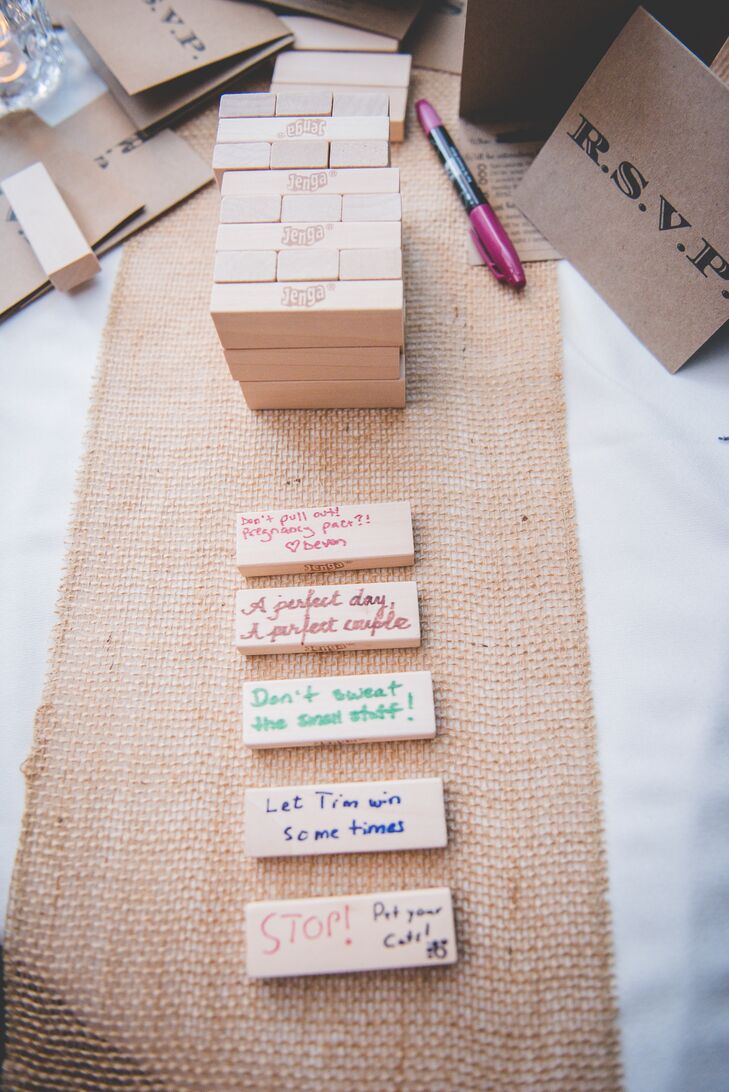 R.S.V.P.
R.S.V.P.
Jenga®
Jenga®
Jenga®
Jenga®
Don't pull out!
Pregnancy pact?!
♡ Devon
Jenga
A perfect day,
A perfect couple
Jenga
Don't sweat
the small stuff!
Let Tim win
some times
STOP! Pet your
Cats!